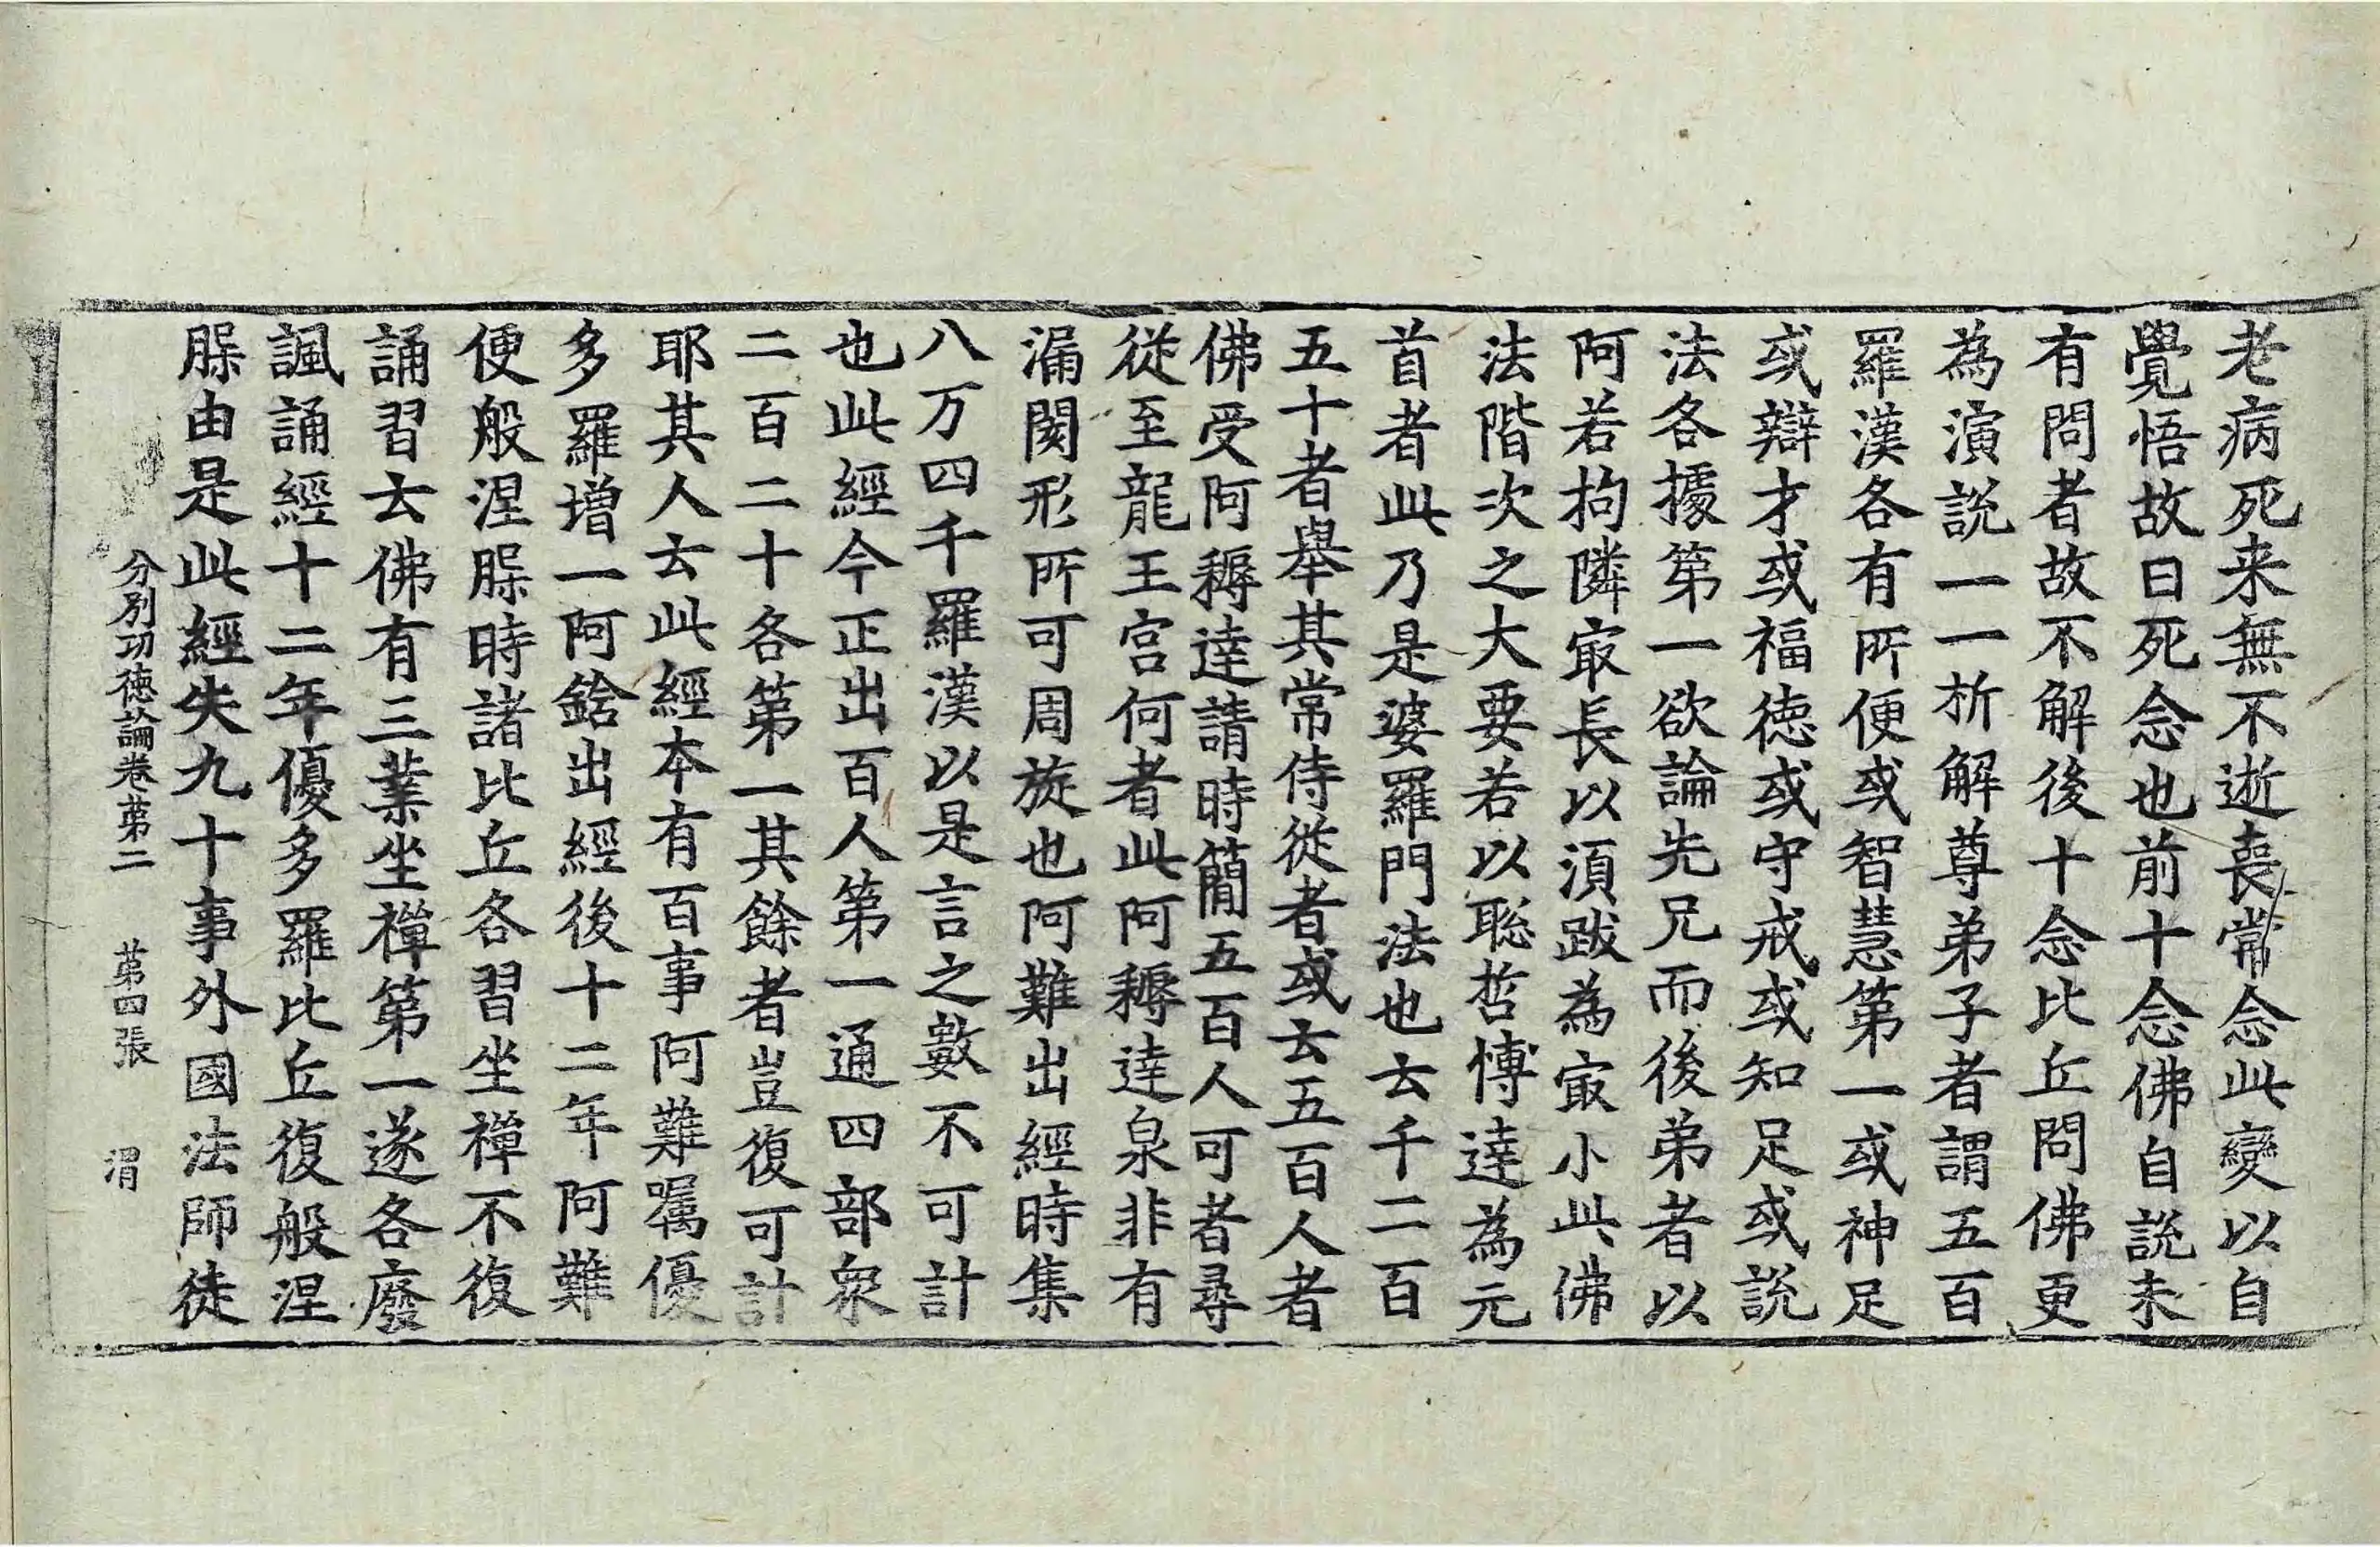 老病死来無不逝喪常念此變以自
覺悟故曰死念也前十念佛自說未
有問者故不解後十念比丘問佛更
為演說一一析解尊弟子者謂五百
羅漢各有所便或智慧第一或神足
或辯才或福徳或守戒或知足或說
法各據第一欲論先兄而後弟者以
阿若拘隣㝡長以湏跋為㝡小此佛
法階次之大要若以聡哲愽達為元
首者此乃是婆羅門法也云千二百
五十者舉其常侍從者或云五百人者
佛受阿耨達請時簡五百人可者尋
從至龍王宫何者此阿耨達泉非有
漏闋形所可周旋也阿難出經時集
八万四千羅漢以是言之數不可計
也此經今正出百人第一通四部衆
二百二十各第一其餘者豈復可計
耶其人云此經本有百事阿難囑優
多羅增一阿鋡出經後十二年阿難
便般涅𦖠時諸比丘各習坐禪不復
誦習云佛有三業坐禪第一遂各廢
諷誦經十二年優多羅比丘復般涅
𦖠由是此經失九十事外國法師徒
分别功徳論卷苐二　苐四張　渭